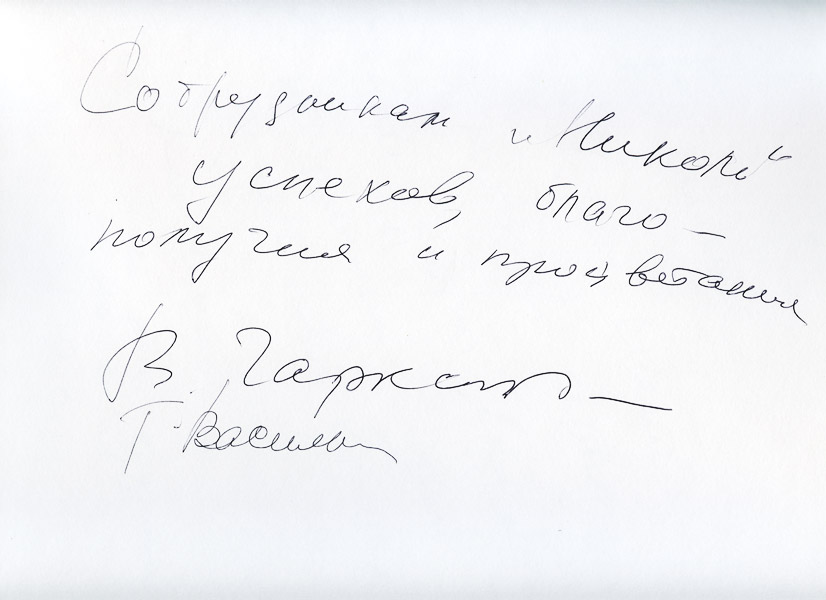 Сотрудникам "Никор"
успехов, благо-
получия и процветания
В.
Т. Васильев